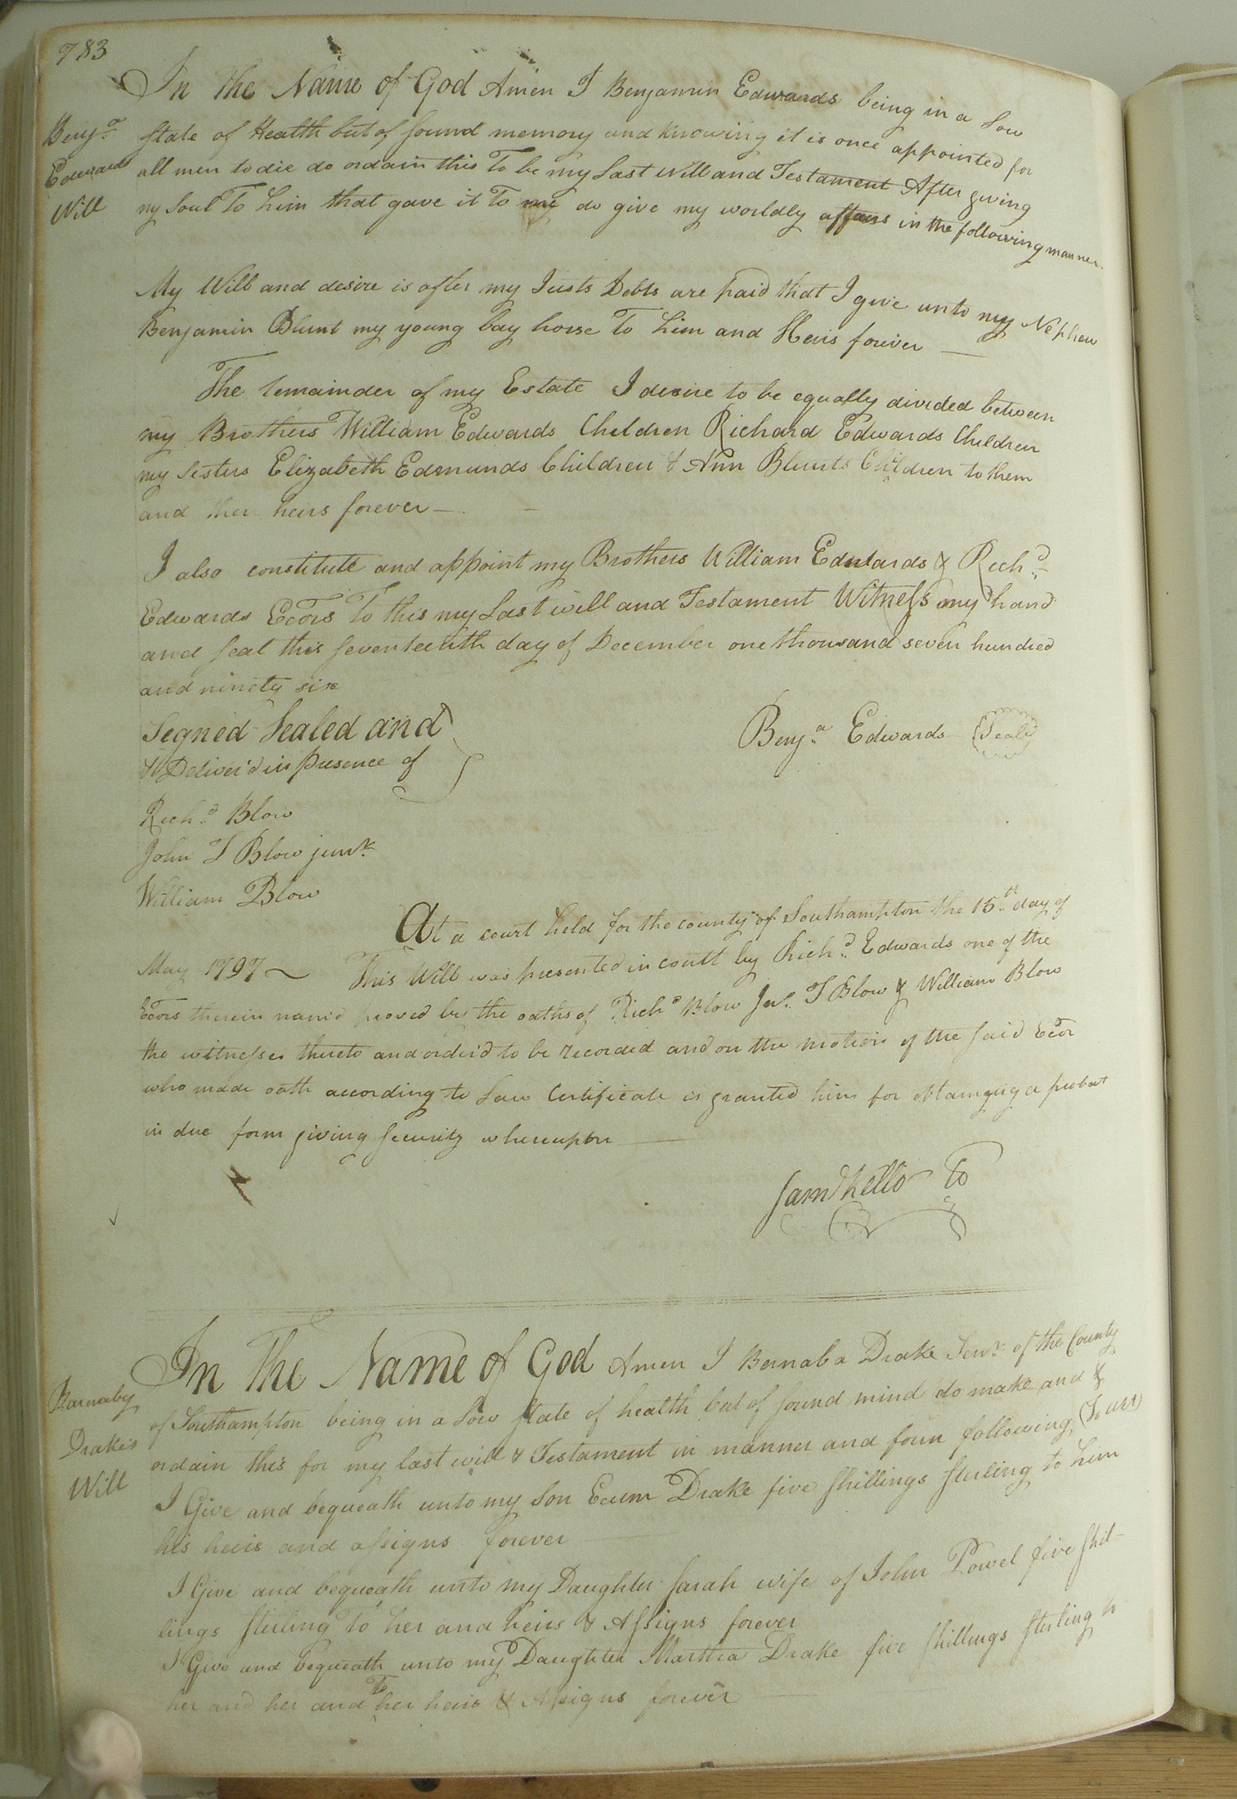 783
In the Name of God Amen I Benjamin Edwards being in a Low
Benjª
Edwards
Will
state of Health but of sound memory and knowing it is once appointed for
all men to die do ordain this To be my Last Will and Testament After giving
my Soul To him that gave it To me do give my worldly affairs in the following manner.
My Will and desire is after my Justs Debts are paid that I give unto my Nephew
Benjamin Blunt my young bay horse To him and Heirs forever
The remainder of my Estate I desire to be equally divided between
my Brothers William Edwards Children Richard Edwards Children
my Sisters Elizabeth Edmunds Children & Ann Blunts Children to them
and ther heirs forever
I also constitute and appoint my Brothers William Edwards & Richd
Edwards Ecors To this my Last will and Testament Witness my hand
and seal this seventeenth day of December one thousand seven hundred
and ninety six
Segned Sealed and
Deliver'd in presence of
Benjª Edwards (Seal)
Richd Blow
John T Blow junr
William Blow
At a court held for the county of Southampton the 15th day of
May 1797 This Will was presented in coutt by Richd Edwards one of the
Ecors therein nam'd proved by the oaths of Richd Blow Jnr T Blow & William Blow
the witnesses thereto and order'd to be recorded and on the motion of the said Ecor
who made oath according to Law Certificate is granted him for obtaining a probat
in due form giving security whereupon
Saml Kello
In The Name of God Amen I Barnaba Drake Senr of the County
Barnaby
Drake's
Will
of Southampton being in a low state of health but of sound mind do make and &
ordain this for my last will & Testament in manner and form following (To wit)
I Give and bequeath unto my Son Drake five shillings sterling to him
his heirs and assigns forever
I Give and bequeath unto my Daughter Sarah wife of John Powel five shil-
lings sterling to her and heirs & Assigns forever
I Give and bequeath unto my Daughter Marthia Drake five shillings sterling to
her and her and To her heirs & Assigns forever